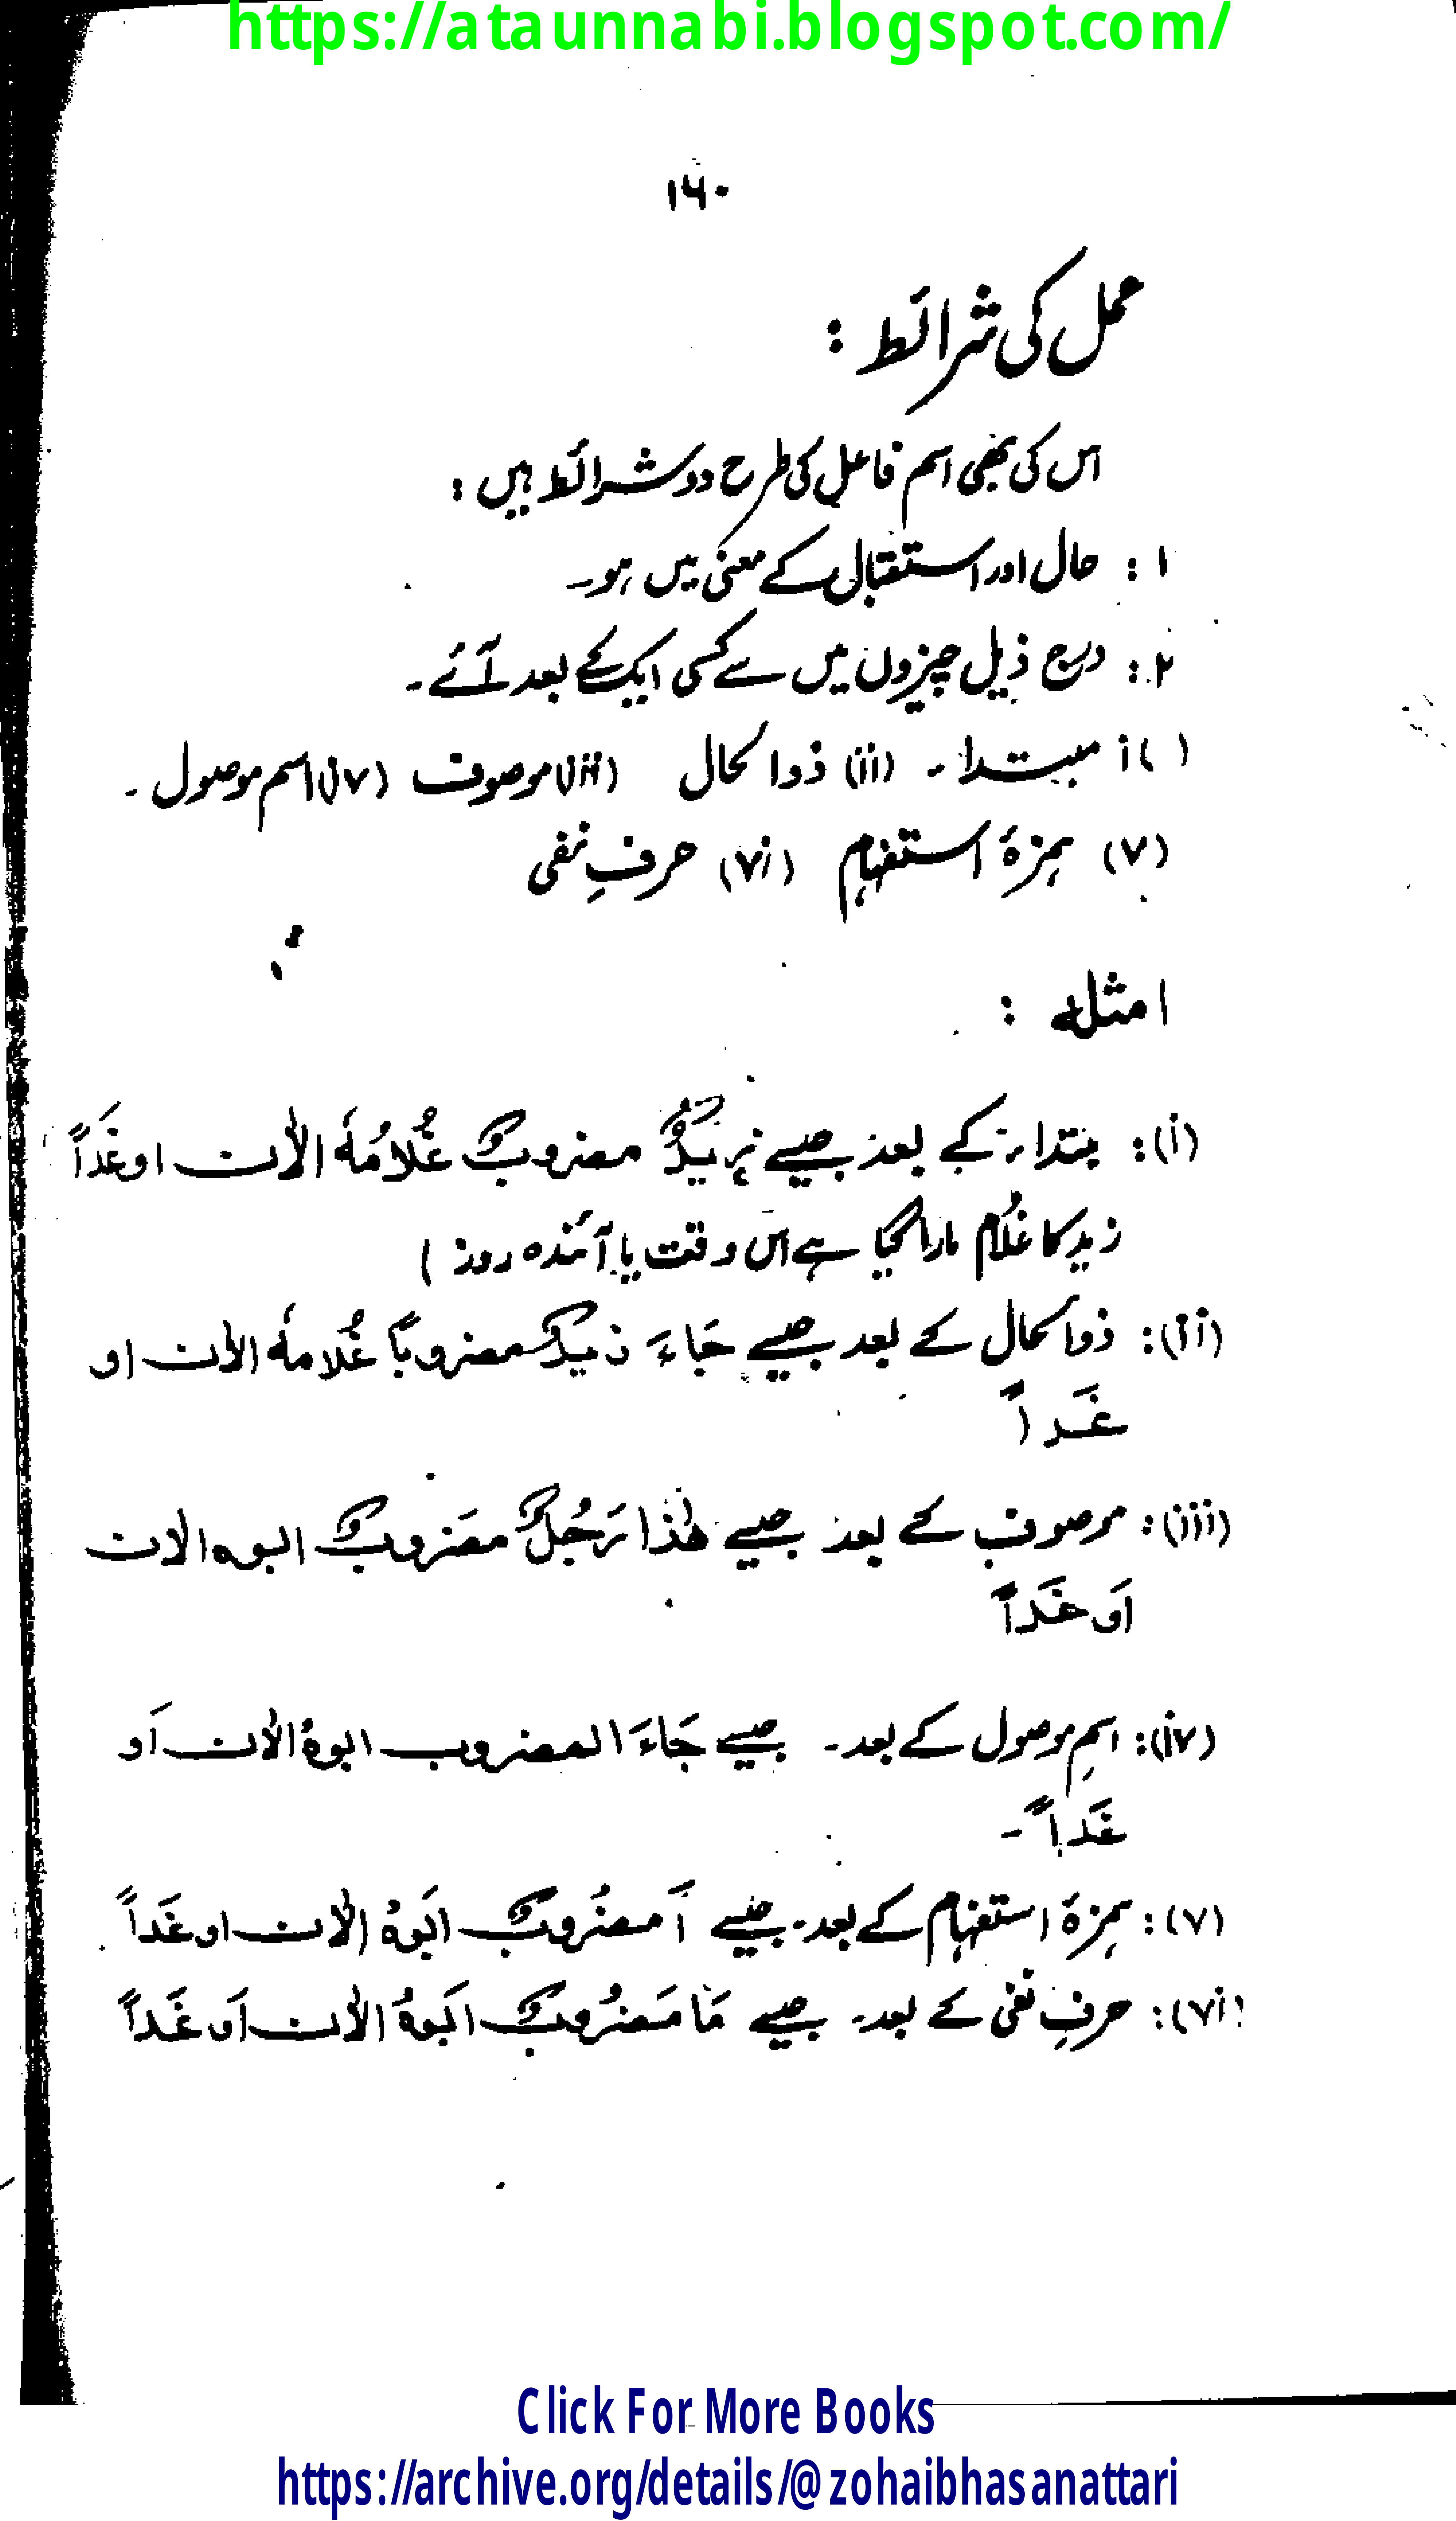 https://ataunnabi.blogspot.com/
۱۶۰
عمل کی شرائط :
اس کی بھی اسم فاعل کی طرح دو شرائط ہیں :
۱ : حال اور استقبال کے معنی میں ہو۔
۲ : درج ذیل چیزوں میں سے کسی ایک کے بعد آئے۔
(i) مبتدا ۔ (ii) ذوالحال (iii) موصوف (iv) اسم موصول ۔
(v) ہمزۂ استفہام (vi) حرفِ نفی
امثلہ :
(i): مبتدا کے بعد جیسے زَیْدٌ مضروبٌ غُلامُہٗ الاٰن او غَداً
زید کا غُلام مارا گیا ہے اس وقت یا آئندہ روز )
(ii): ذوالحال کے بعد جیسے جَاءَ زیدٌ مضروباً غُلامہٗ الاٰن او
غَداً
(iii): موصوف کے بعد جیسے ھٰذا رَجُلٌ مضَروبٌ ابوہ الاٰن
اَو غَداً
(iv): اسمِ موصول کے بعد۔ جیسے جَاءَ المضروب ابوہُ الاٰن اَو
غَداً ۔
(v): ہمزۂ استفہام کے بعد۔ جیسے أَ مضُروبٌ ابَوہُ الاٰن او غَداً
(vi): حرفِ نفی کے بعد۔ جیسے مَا مَضرُوبٌ ابَوہُ الاٰن اَو غَداً
Click For More Books
https://archive.org/details/@zohaibhasanattari